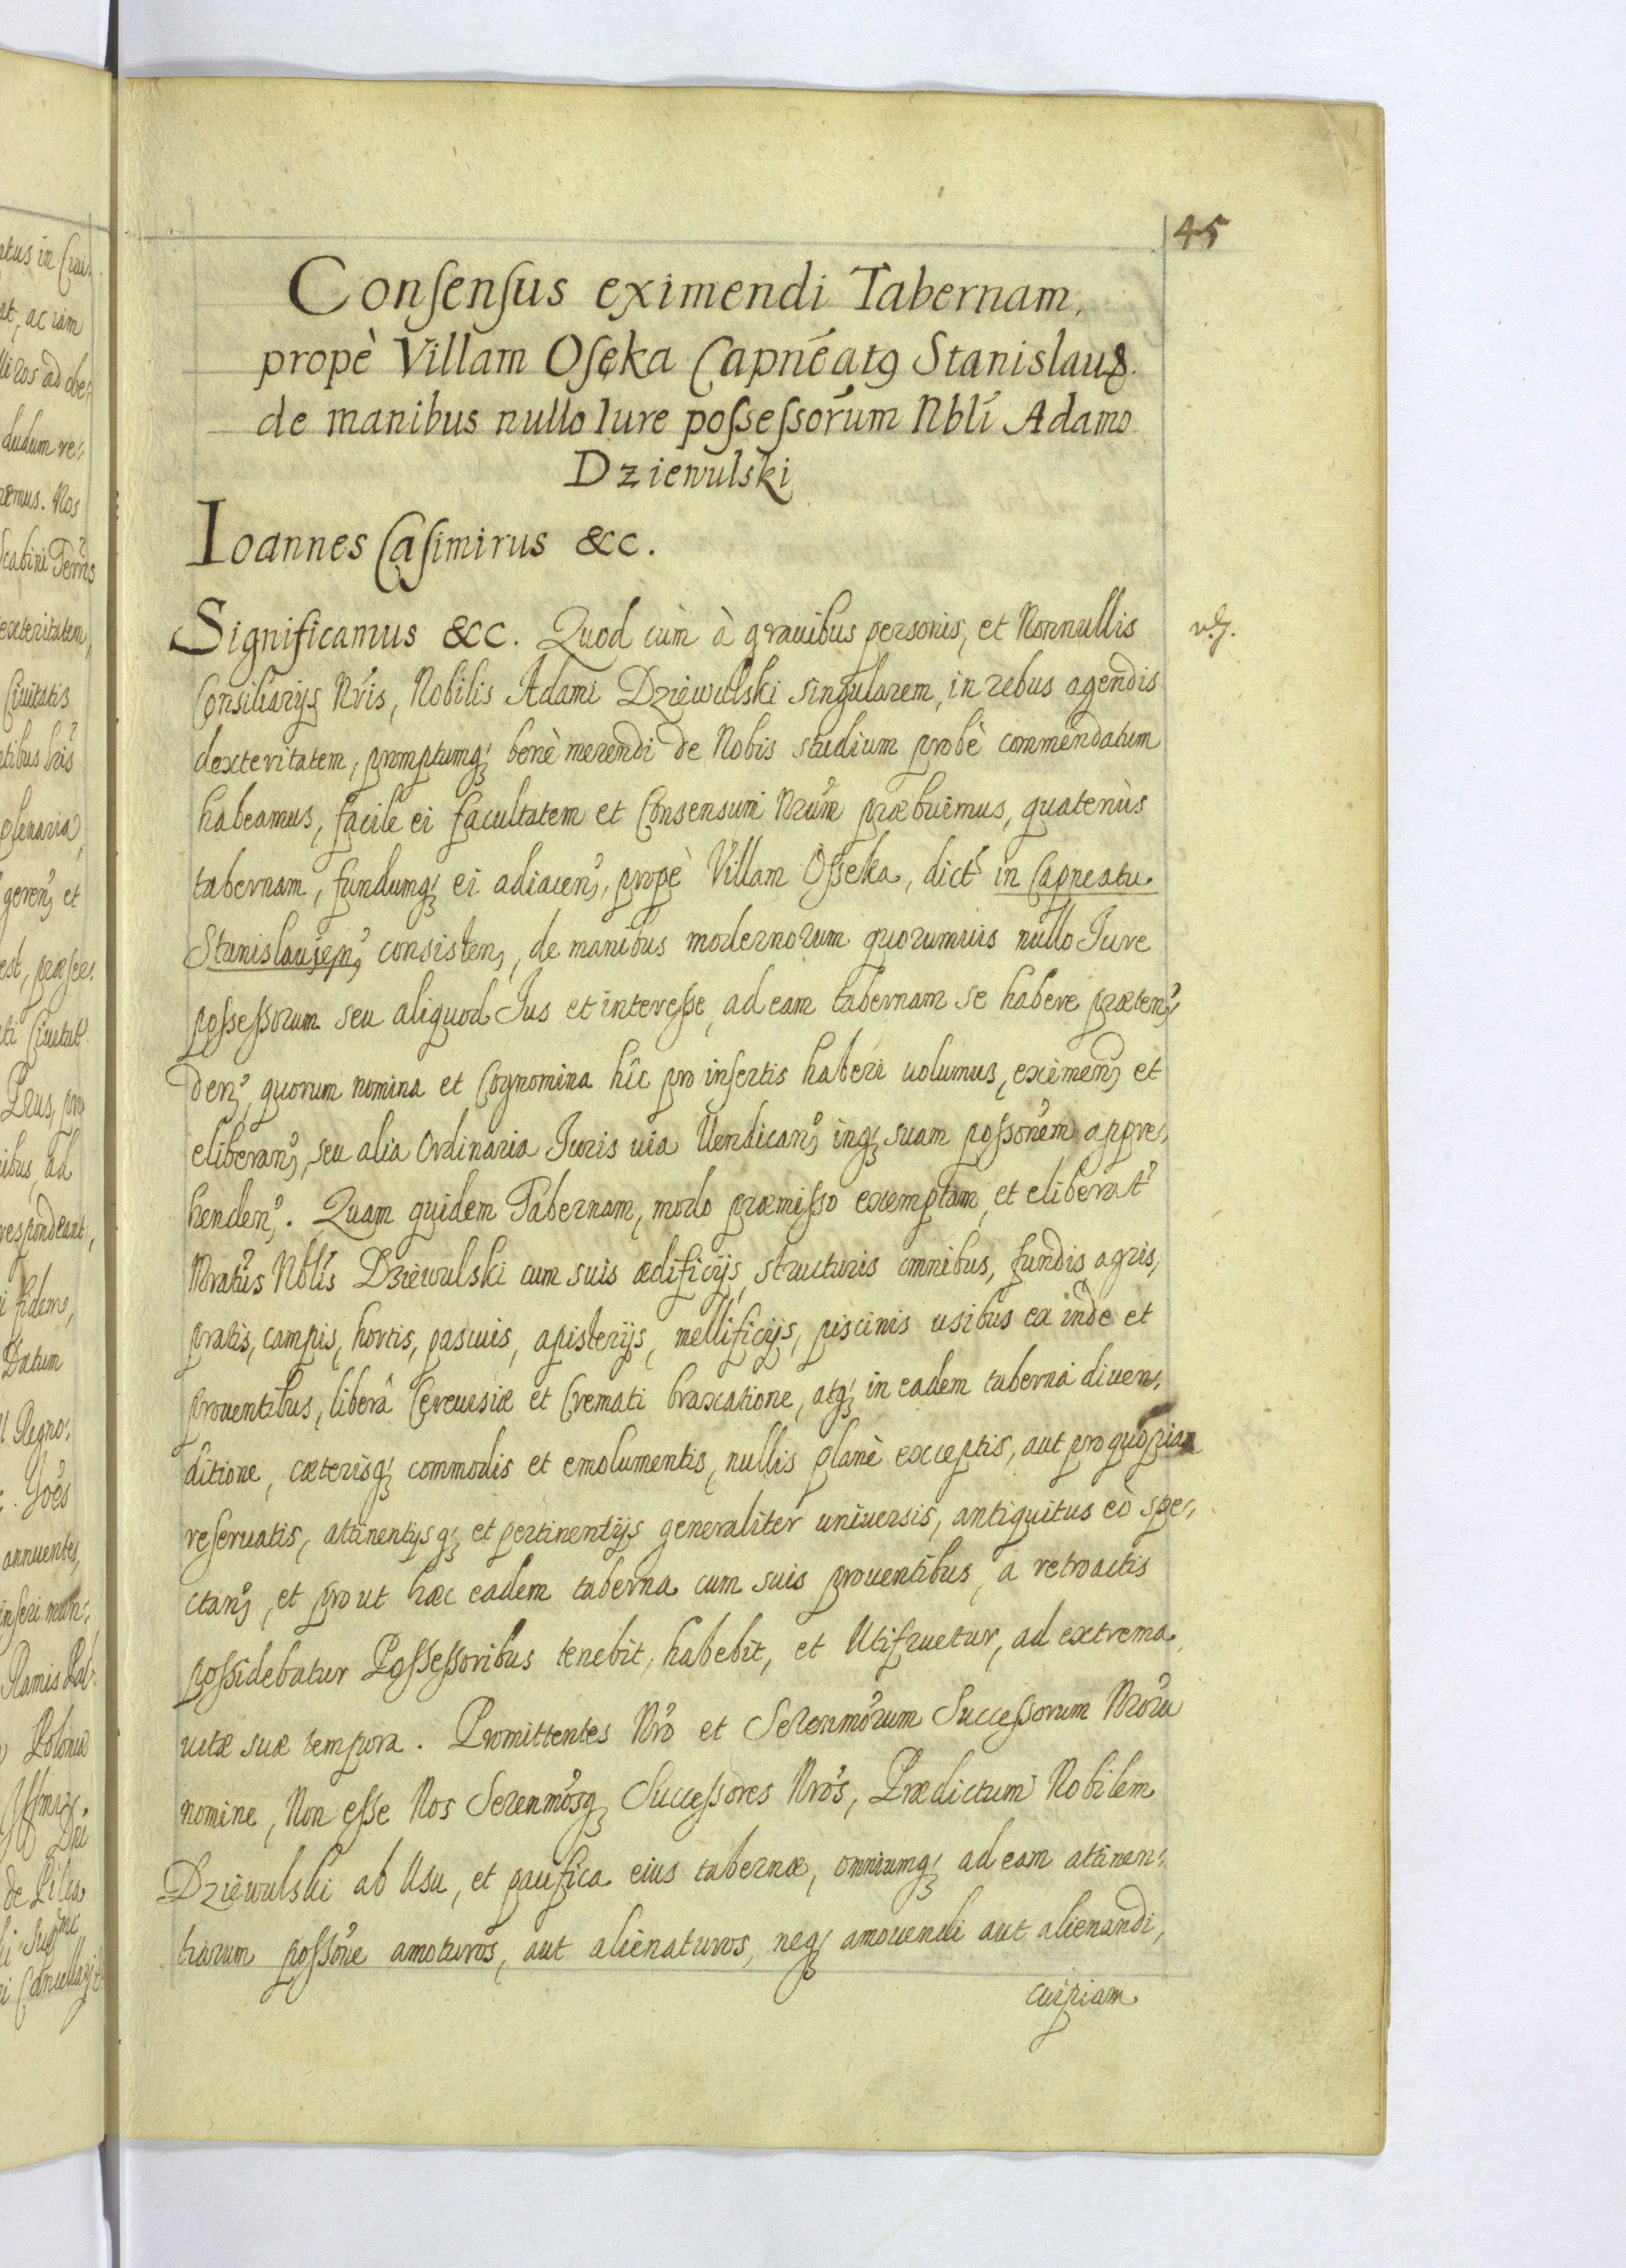 45
Consensus eximendi Tabernam,
propè Villam Oseka Capneatus Stanislaus
de manibus nullo Iure possessorum Nbli Adamo
Dziewulski
Ioannes Casimirus &c.
Significamus &c. Quod cùm à grauibus personis, et Nonnullis
Consiliarijs Nris, Nobilis Adami Dziewulski singularem, in rebus agendis
dexteritatem, promptumq benè merendi de Nobis studium probè commendatum
habeamus, facile ei facultatem et Consensum Nrum præbuimus, quatenùs
tabernam, fundumq ei adiacen, propè Villam Osseka, dict in Capneatu
Stanislauien consisten, de manibus modernorum quorumuis nullo Iure
possessorum seu aliquod Ius et interesse, ad eam tabernam se habere præten,
den, quorum nomina et Cognomina hîc pro insertis haberi uolumus, eximen et
eliberan, seu alia Ordinaria Iuris uia Uendican, inq suam possonem appre,
henden. Quam quidem Tabernam, modo præmisso exemptam, et eliberat
Nratus Nblis Dziewulski cum suis ædificijs, structuris omnibus, fundis, agris,
pratis, campis, hortis, pascuis, apisterijs, mellificijs, piscinis usibus ex inde et
prouentibus, liberâ Cereuisiæ et Cremati braxatione, atq in eadem taberna diuen,
ditione, cæterisq commodis et emolumentis, nullis planè exceptis, aut pro quopiam
reseruatis, attinentijsq et pertinentijs generaliter uniuersis, antiquitus eò spe,
ctan, et prout hæc eadem taberna cum suis prouentibus, a retroactis
possidebatur Possessoribus tenebit, habebit, et Utifruetur, ad extrema
uitæ suæ tempora. Promittentes Nro et Serenmorum Successorum Nroru
nomine, Non esse Nos Serenmosq Successores Nros, Prædictum Nobilem
Dziewulski ab Usu, et pacifica eius tabernæ, omniumq ad eam attinen,
tiarum possone amoturos, aut alienaturos, neq amouendi aut alienandi,
cuipiam